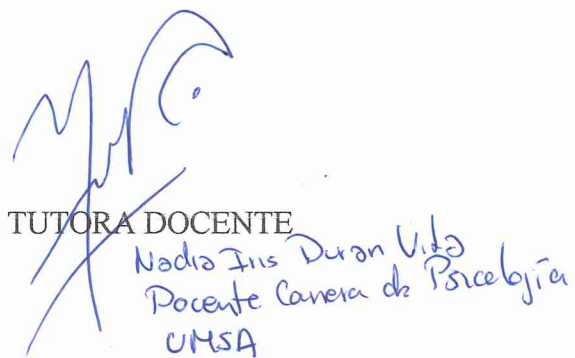 TUTORA DOCENTE
Nadia Iris Duran Vida
Docente Carrera de Psicología
UMSA